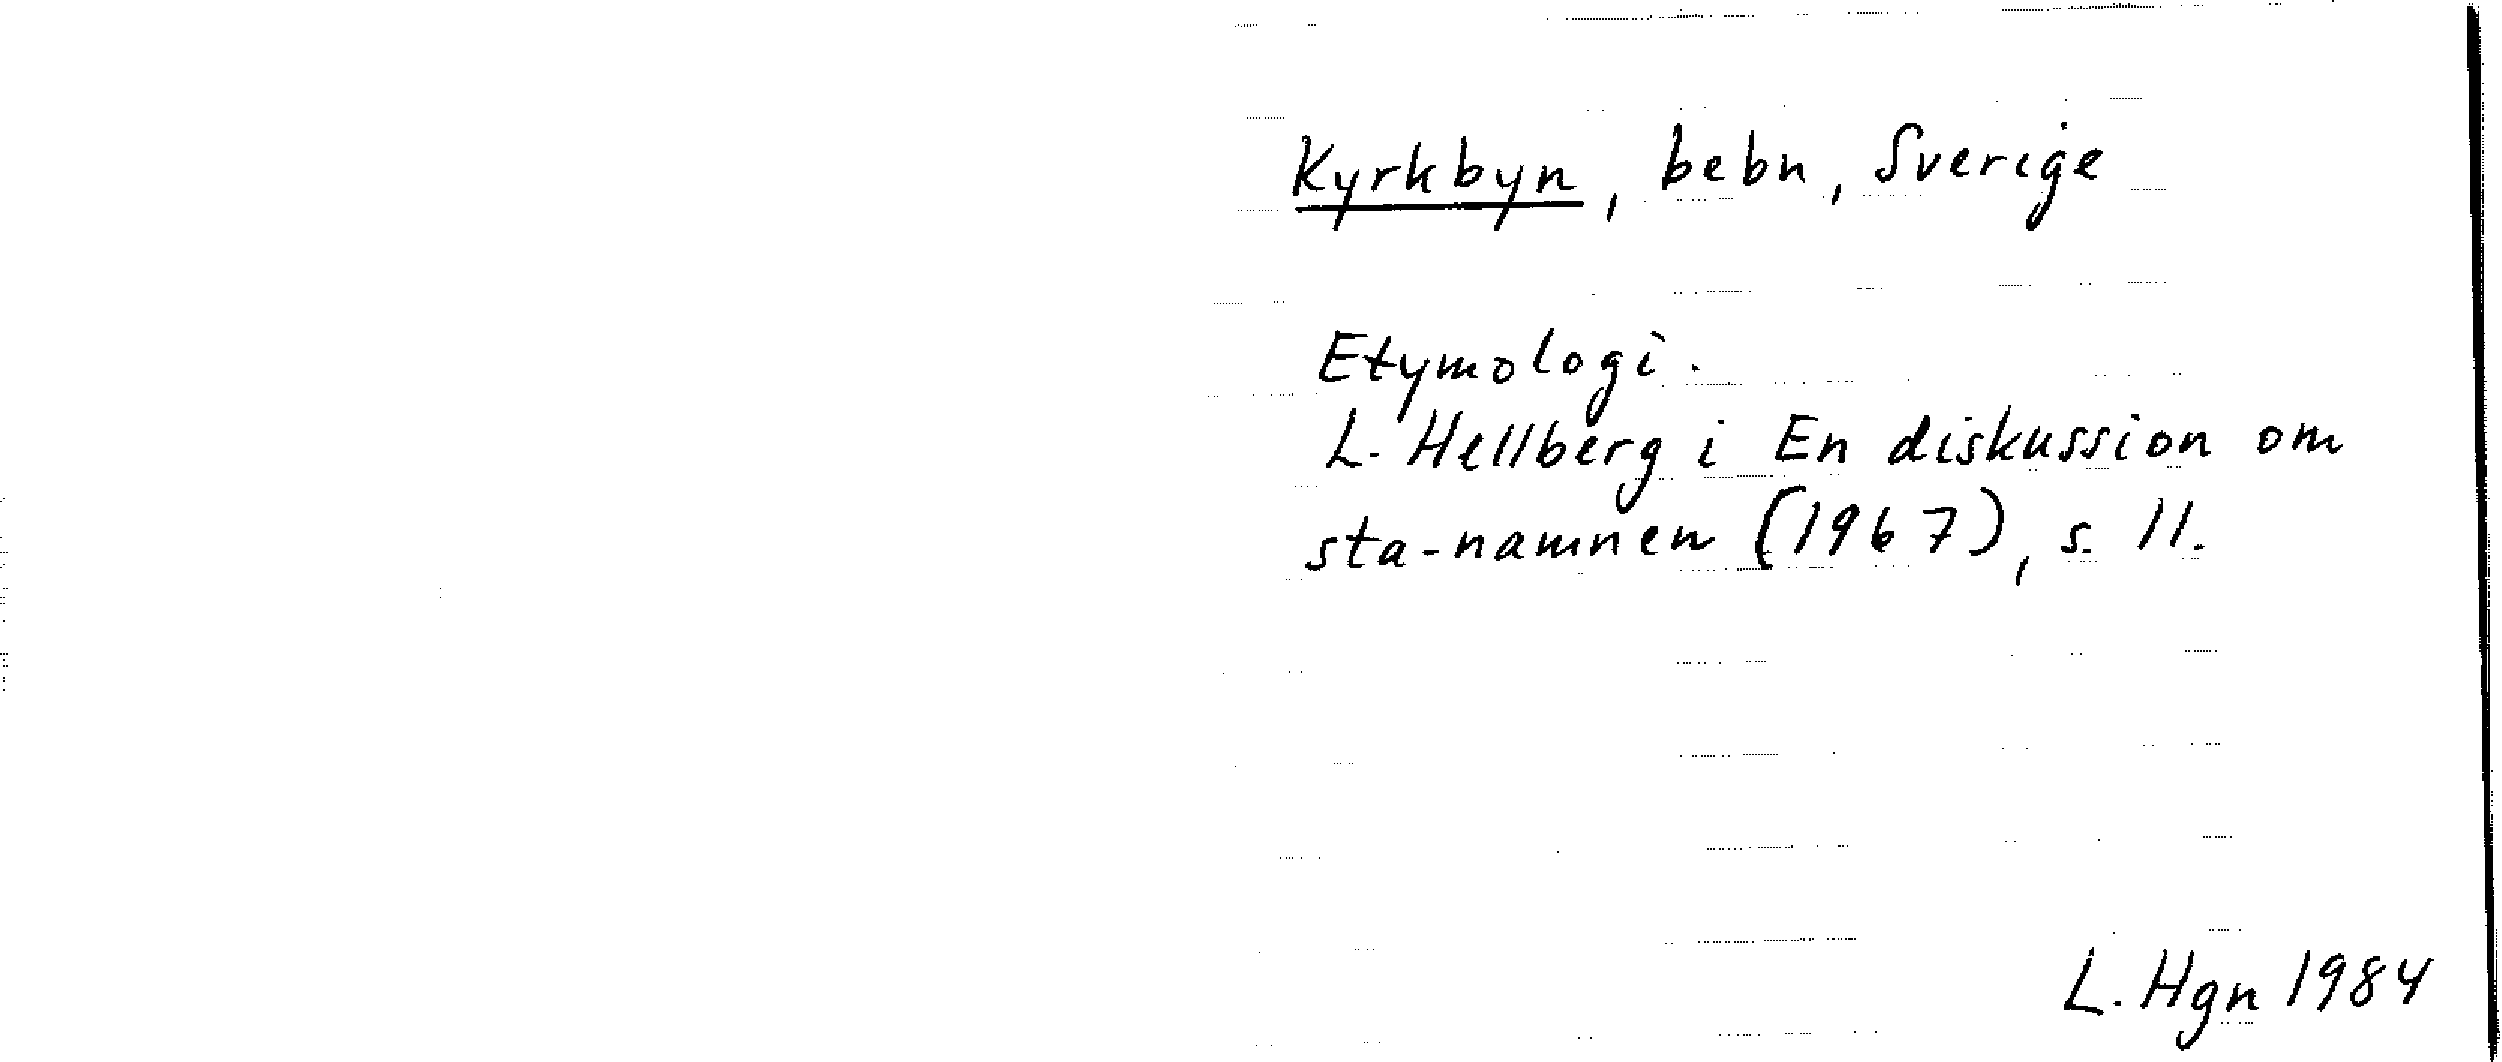 Kyrkbyn, bebn, Sverige
Etymologi.
L. Hellberg i En diskussion om
sta-namnen (1967), s. 11.
L. Hgn 1984